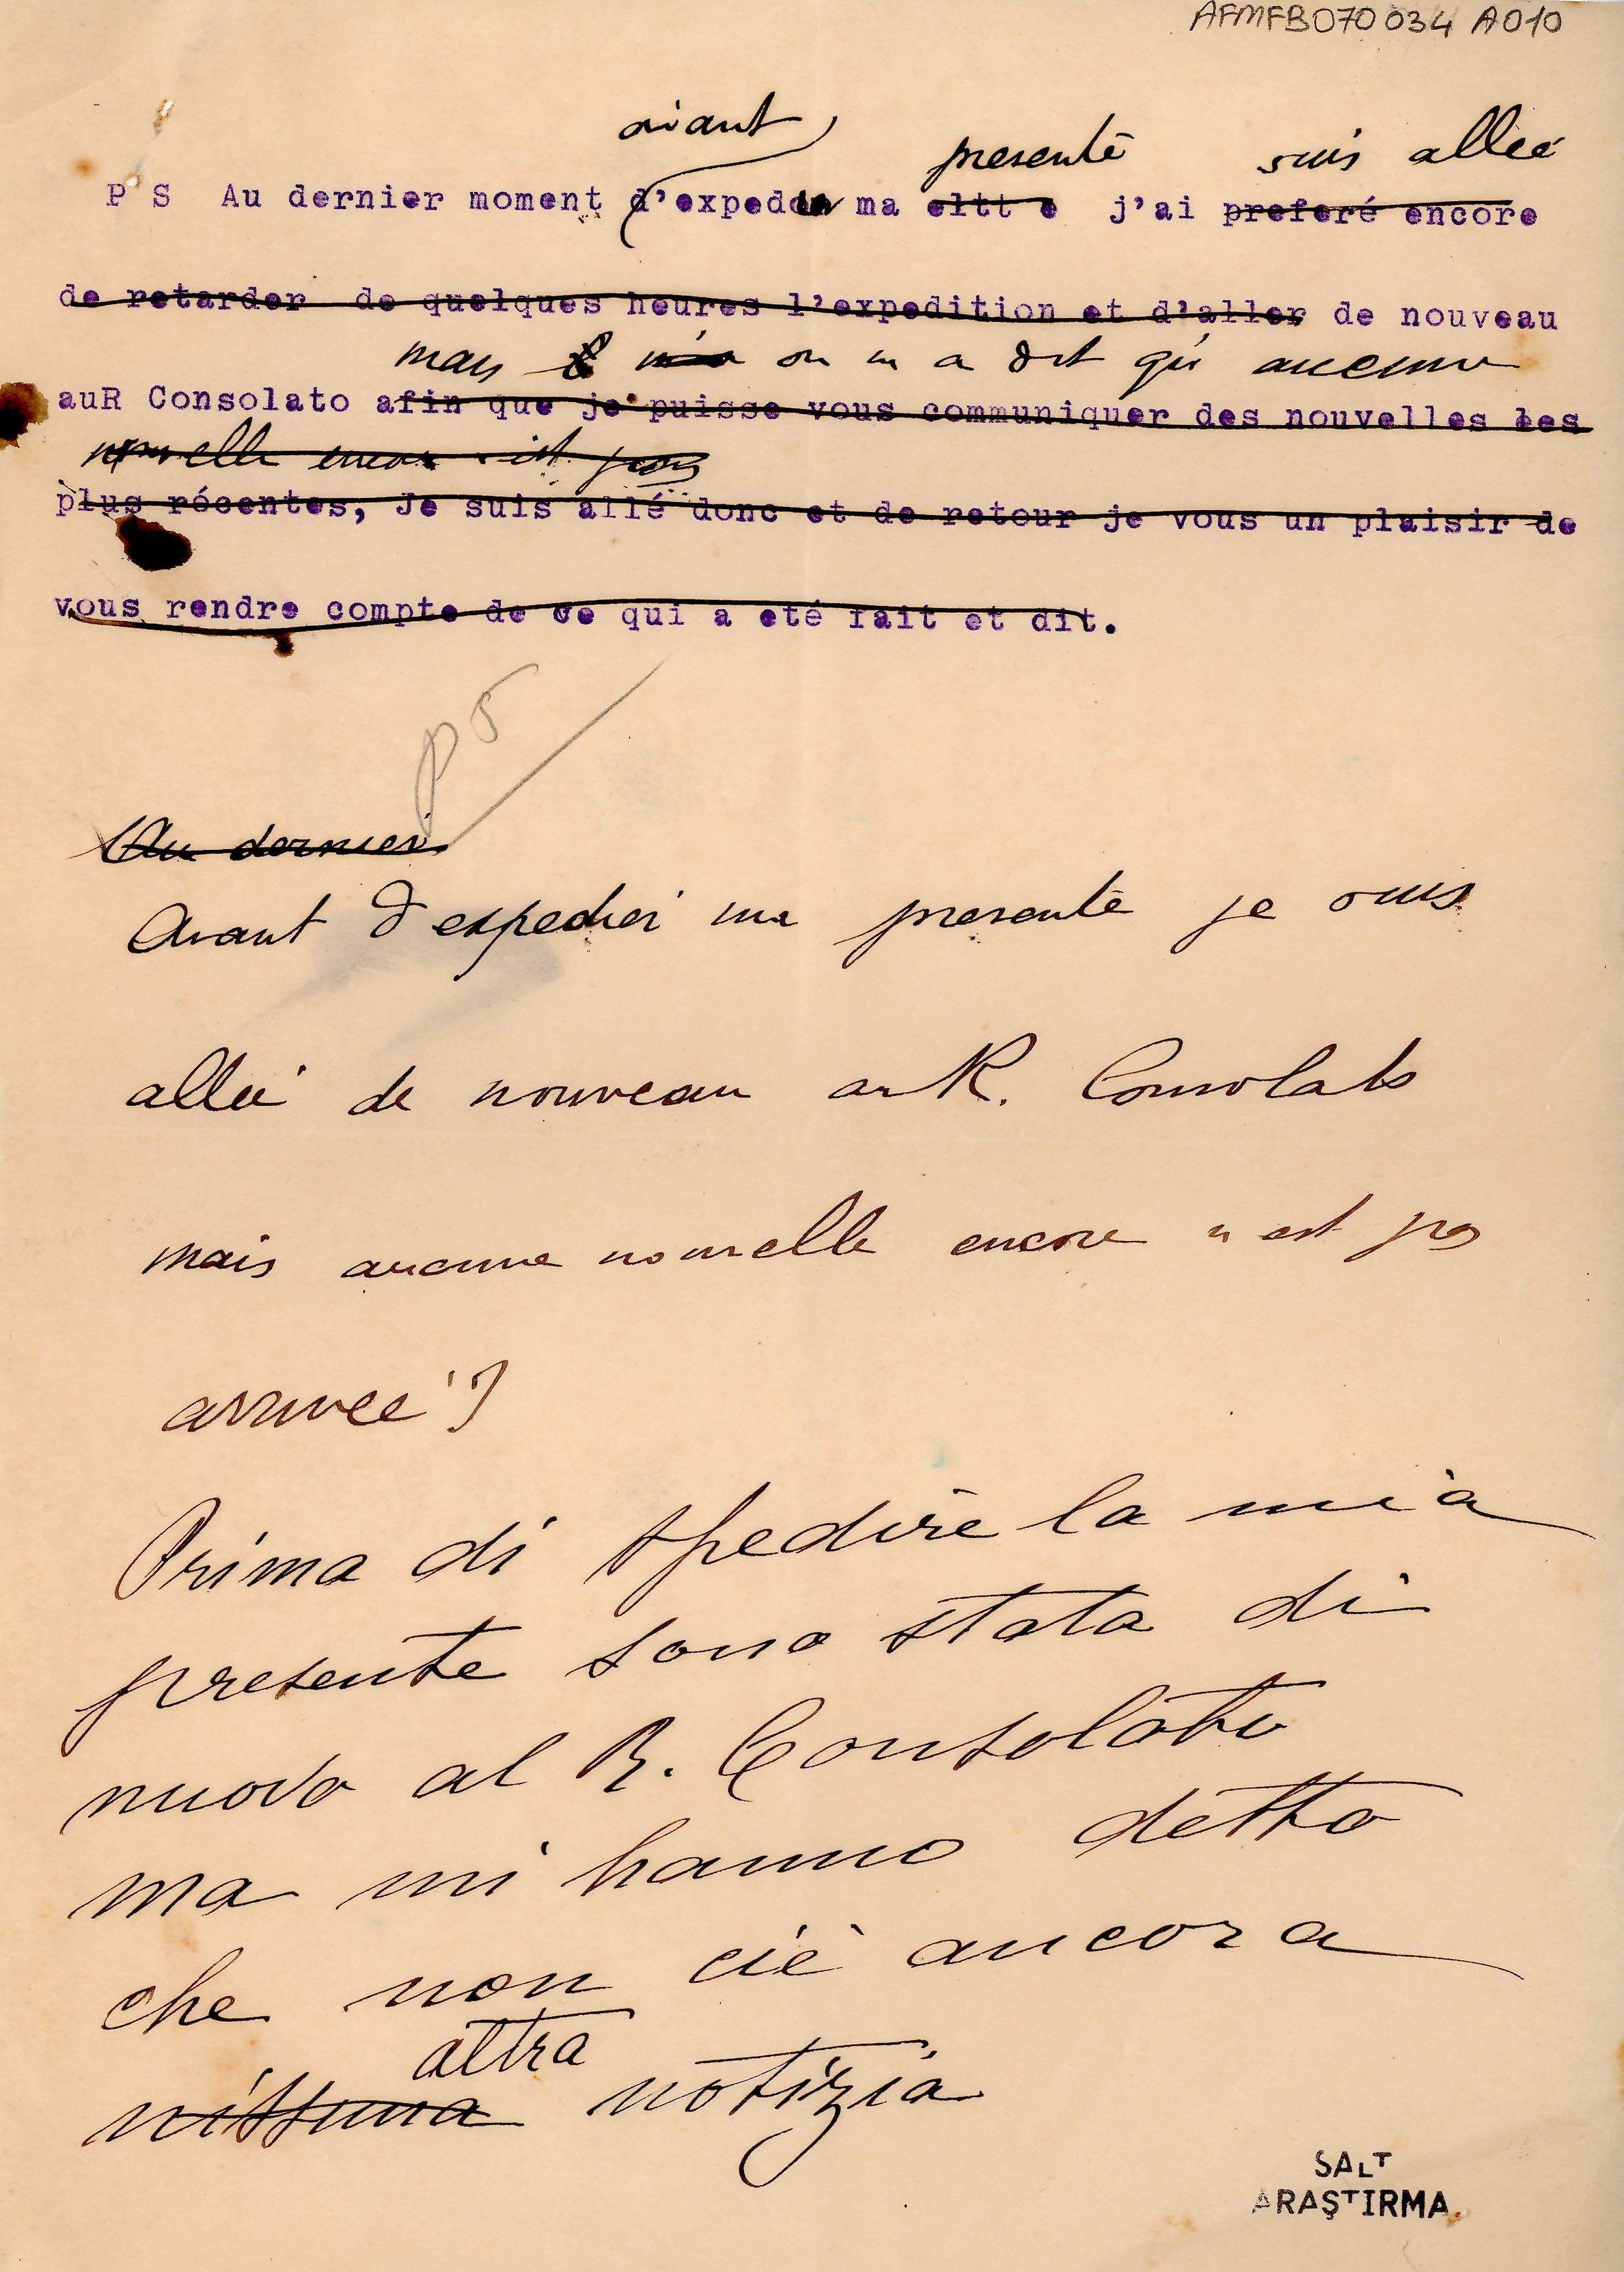 AFMFB070034 A010
avant
presente suis allee
P S Au dernier moment d'expeder ma eltt e j'ai preferé encore
de retarder de quelques heures l'expedition et d'aller de nouveau
mais on m a dit qu aucune
auR Consolato afin que je puisse vous communiquer des nouvelles les
nouvelle encore n'est pas
plus récentes, Je suis allé donc et de retour je vous un plaisir de
vous rendre compte de ce qui a eté fait et dit.
P S
Au dernier
Avant d expedier ma presente je suis
alleé de nouveau au R. Consolato
mais aucune nouvelle encore n est pas
arrivee
Prima di spedire la mia
presente sono stata di
nuovo al R. Consolato
ma mi hanno detto
che non ciè ancora
altra
nissuna notizia
SALT
ARAŞTIRMA